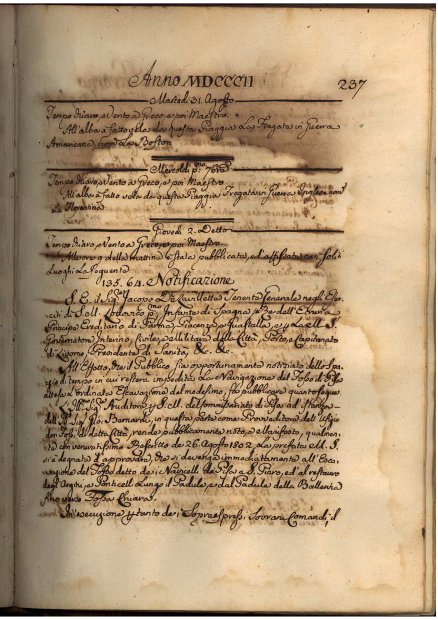 Anno MDCCCII
237
Martedì 31. Agosto
Tempo chiaro, e Vento a Greco, e poi Maestro.
All'alba a fatto vela da questa Piaggia La Fregata in Guerra
Americana, nom.ta La Boston
Mercoldì p.mo 7bre
Tempo chiaro, e Vento a Greco, e poi Maestro
All'alba a fatto vela da questa Piaggia Fregata in Guerra Inglese nom.ta
La Florentina
Giovedì 2. Detto
Tempo chiaro, e Vento a Greco, e poi Maestro.
Alle ore 9 della mattina è stata pubblicata, ed affissata nei soliti
Luoghi La seguente
135. 64. Notificazione
S. E. il Sig.r Jacopo De Tenente Generale negli Eser-
citi di S. M. Lodovico p.mo Infante di Spagna Rè dell'Etruria
Principe Ereditario di Parma, Piacenza, e Guastalla, e p. La M. S.
Governatore Interno, Civile, e Militare della Città, Porto, e Capitanato
di Livorno, Presidente di Sanità, &c. &c.
All'Effetto, che il Pubblico sia opportunamente notiziato dello Spa-
zio di tempo in cui resterà impedita La Navigazione del Fosso di Pisa
attesa L'ordinata Escavazione del medesimo, fà pubblicare quanto segue
Sig.r Auditore di Pisa ad istanza
Sig. Bernardo in questa parte come Provveditore dell'Ufizio
dei Fossi di detta Città, rende pubblicamente noto, e Manifesto, qualmente
con venerat.mo Rescritto de 26. Agosto 1802. La prefata M. S.
si è degnata d'approvare, che si devenga immediatamente all'Esca-
vazione del Fosso detto de i Navicelli da Pisa a S. Piero, ed al restauro
degl'Argini, e Ponticelli Lungo il Padule, e dal Padule della
Fosso Chiaro.
In esecuzione p. tanto de i Sopraespressi Sovrani Comandi, il